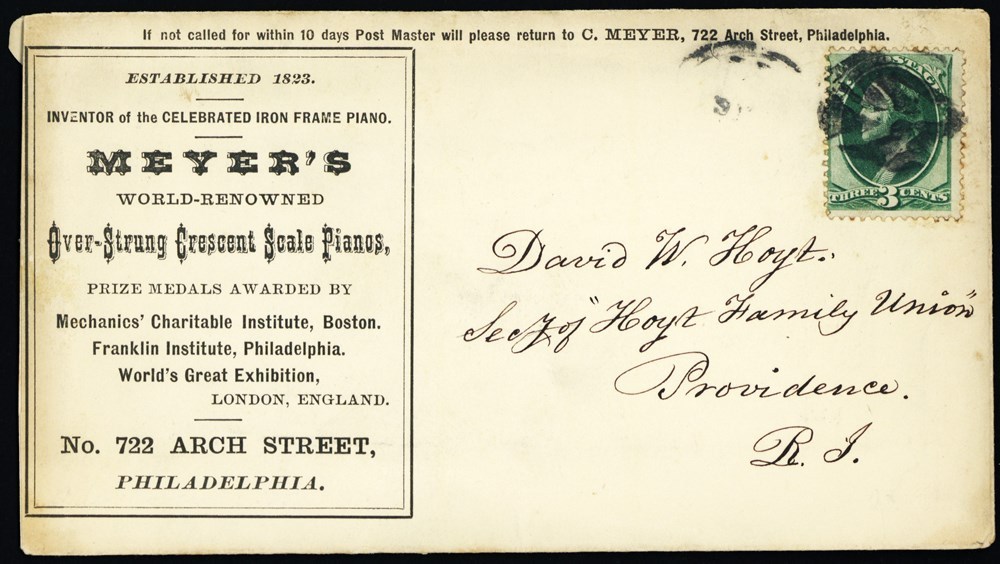 If not called for within 10 days Post Master will please return to C. MEYER, 722 Arch Street, Philadelphia.
ESTABLISHED 1823.
INVENTOR of the CELEBRATED IRON FRAME PIANO.
MEYER'S
WORLD-RENOWNED
Over-Strung Crescent Scale Pianos,
PRIZE MEDALS AWARDED BY
Mechanics' Charitable Institute, Boston.
Franklin Institute, Philadelphia.
World's Great Exhibition,
LONDON, ENGLAND.
No. 722 ARCH STREET,
PHILADELPHIA.
POSTAGE
THREE 3 CENTS
David W. Hoyt.
Secy of "Hoyt Family Union"
Providence.
R. I.